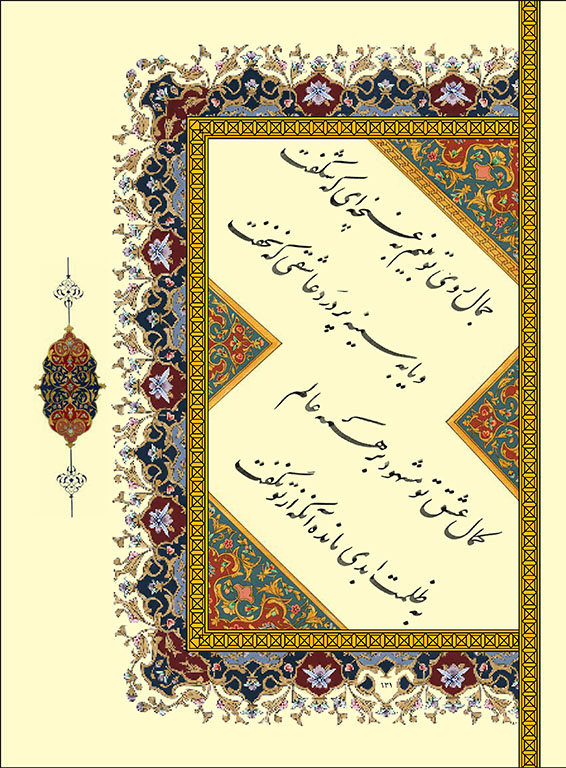 جمال روی تو بینم به غنچه‌ای که شکفت
و یا به سینه پر درد عاشقی که نخفت
کمال عشق تو مشهود بر همه عالم
به ظلمت ابدی مانده آنکه از تو نگفت
۱۳۱